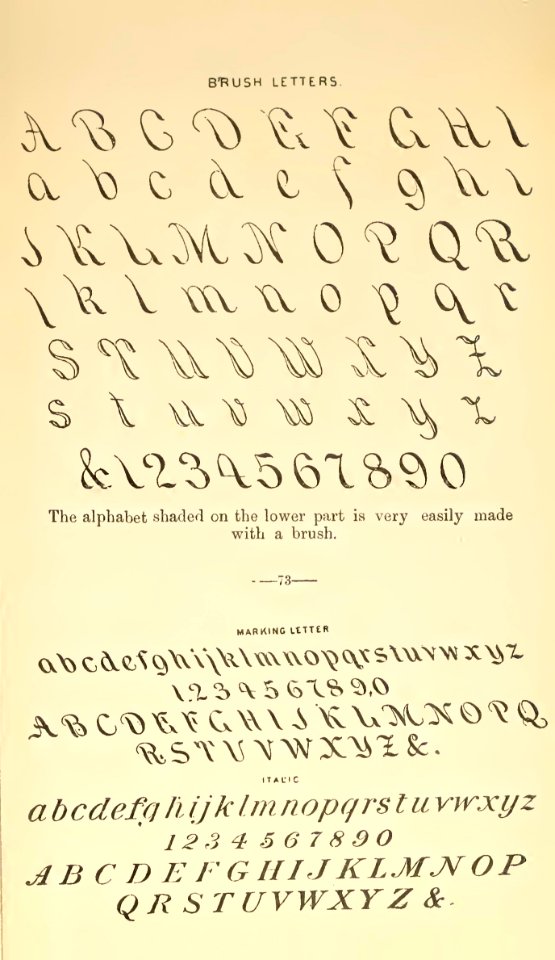 BRUSH LETTERS.
A B C D E F G H I
a b c d e f g h i
J K L M N O P Q R
j k l m n o p q r
S T U V W X Y Z
s t u v w x y z
& 1 2 3 4 5 6 7 8 9 0
The alphabet shaded on the lower part is very easily made
with a brush.
-—73—
MARKING LETTER
a b c d e f g h i j k l m n o p q r s t u v w x y z
1 2 3 4 5 6 7 8 9,0
A B C D E F G H I J K L M N O P Q
R S T U V W X Y Z &.
ITALIC
a b c d e f g h i j k l m n o p q r s t u v w x y z
1 2 3 4 5 6 7 8 9 0
A B C D E F G H I J K L M N O P
Q R S T U V W X Y Z &.